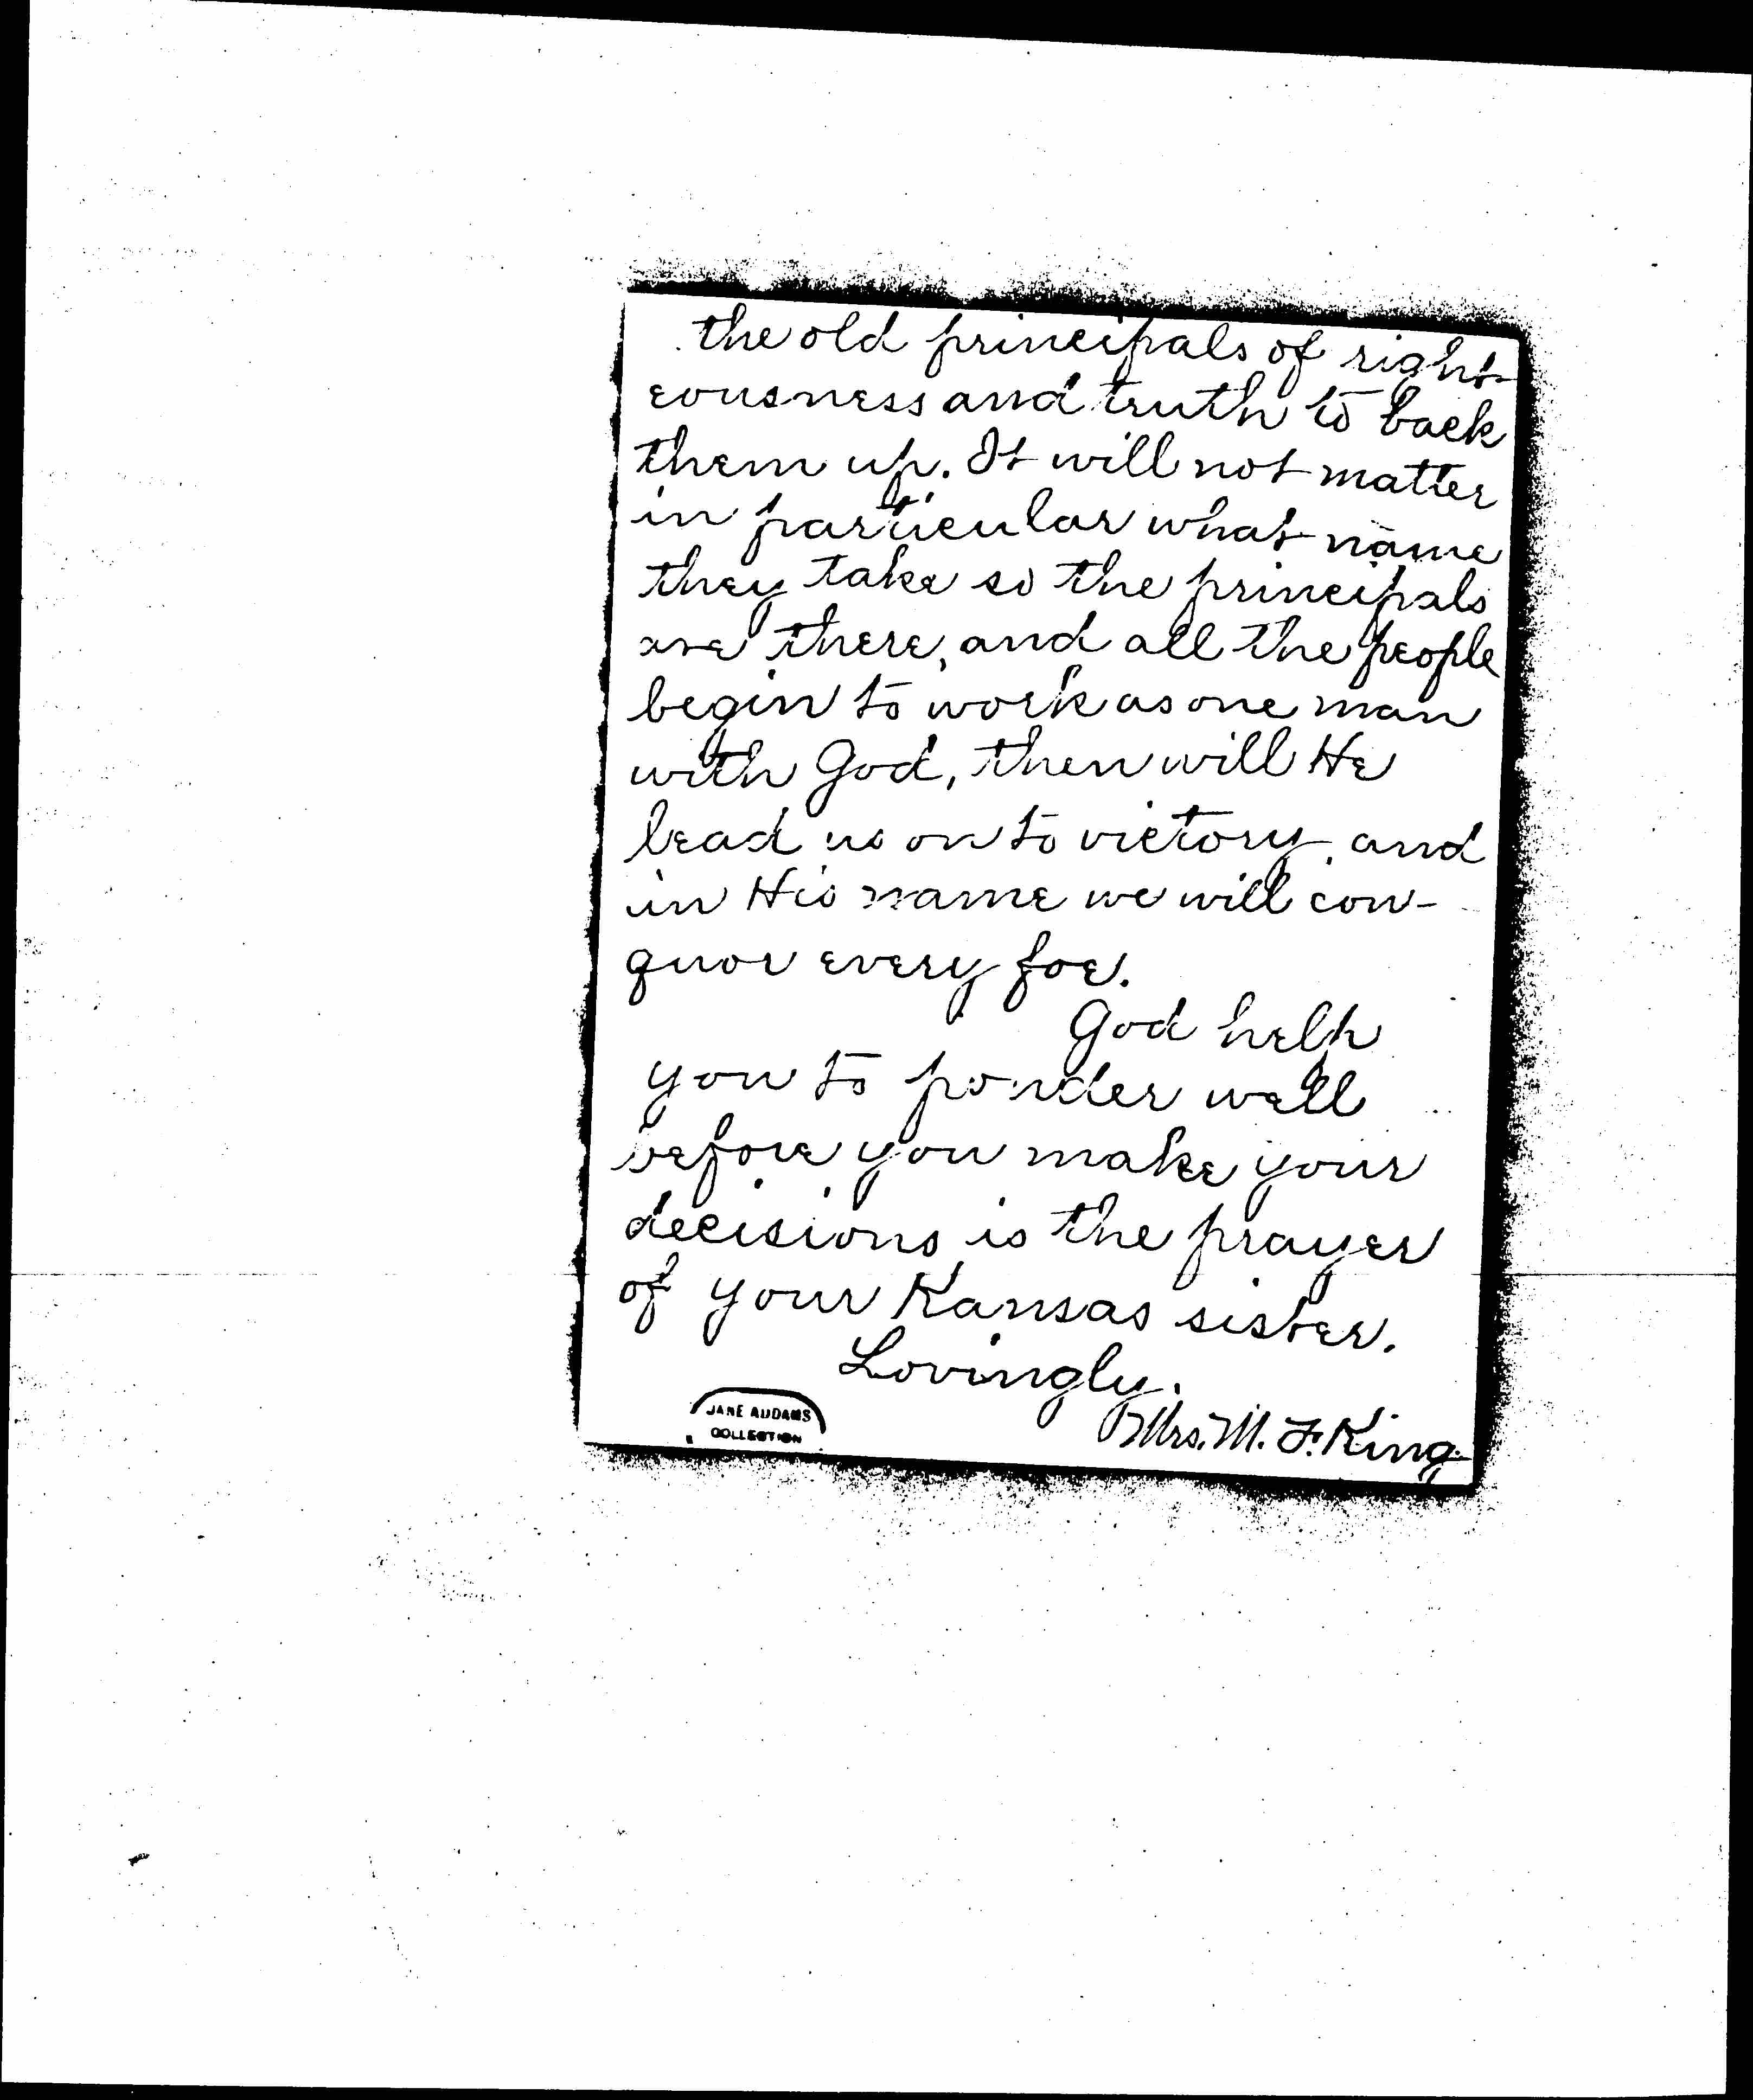 the old principals of right-
eousness and truth to back
them up. It will not matter
in particular what name
they take so the principals
are there, and all the people
begin to work as one man
with God, then will He
lead us on to victory, and
in His name we will con-
quor every foe.
God help
you to ponder well
before you make your
decisions is the prayer
of your Kansas sister.
Lovingly.
Mrs. M. F. King.
JANE ADDAMS
COLLECTION